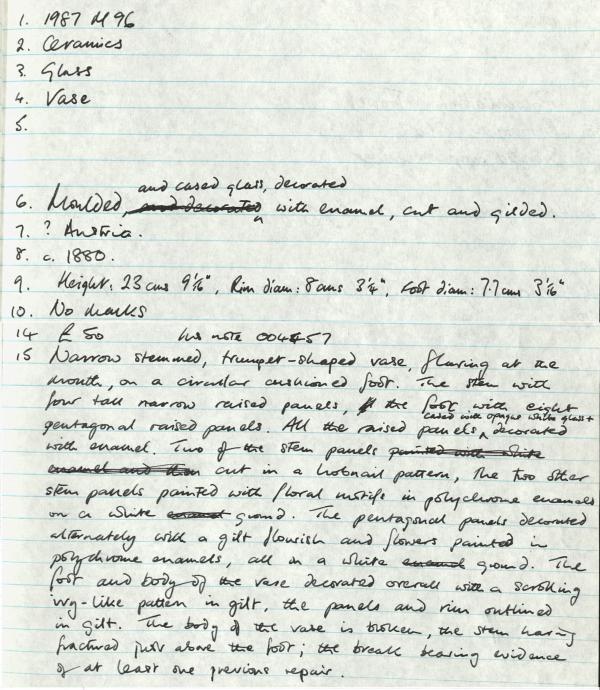 1. 1987 M 96
2. Ceramics
3. Glass
4. Vase
5.
and cased glass, decorated
6. Moulded, and decorated with enamel, cut and gilded.
7. ? Austria.
8. c. 1880.
9. Height: 23 cms 9 1/16", Rim diam: 8 cms 3 1/4", Foot diam: 7.7 cms 3 1/16"
10. No marks
14 £ 50 Ins note 004857
15 Narrow stemmed, trumpet-shaped vase, flaring at the
mouth, on a circular cushioned foot. The stem with
four tall narrow raised panels, the foot with eight
cased with opaque white glass +
pentagonal raised panels. All the raised panels decorated
with enamel. Two of the stem panels painted with white
enamel and then cut in a hobnail pattern, the two other
stem panels painted with floral motifs in polychrome enamels
on a white enamel ground. The pentagonal panels decorated
alternately with a gilt flourish and flowers painted in
polychrome enamels, all on a white enamel ground. The
foot and body of the vase decorated overall with a scrolling
ivy-like pattern in gilt, the panels and rim outlined
in gilt. The body of the vase is broken, the stem having
fractured just above the foot; the break bearing evidence
of at least one previous repair.